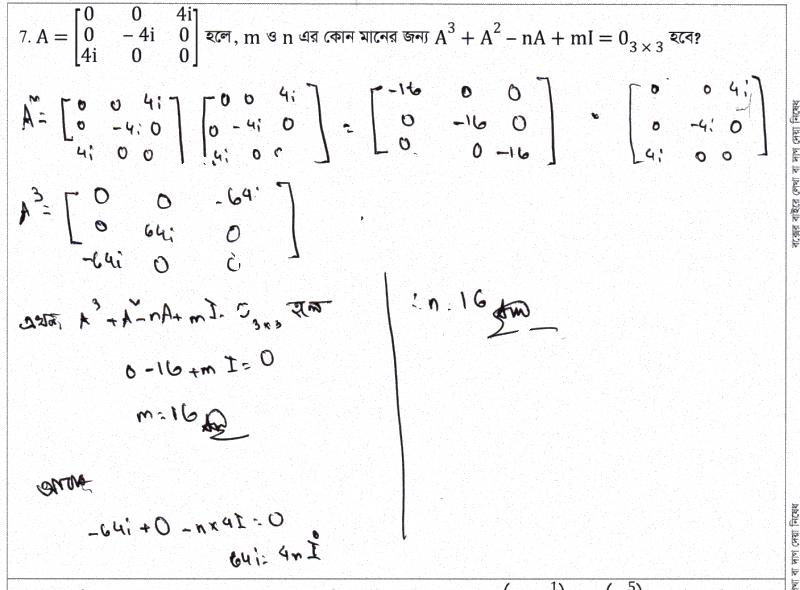 7. A = [0 0 4i; 0 - 4i 0; 4i 0 0] হলে, m ও n এর কোন মানের জন্য A³ + A² − nA + mI = 0₃ₓ₃ হবে?
A² = [0 0 4i; 0 -4i 0; 4i 0 0] [0 0 4i; 0 -4i 0; 4i 0 0] = [-16 0 0; 0 -16 0; 0 0 -16] · [0 0 4i; 0 -4i 0; 4i 0 0]
A³ = [0 0 -64i; 0 64i 0; -64i 0 0]
এখন, A³ + A² - nA + mI = 0₃ₓ₃ হলে
0 -16 + m I = 0
m = 16
আবার
-64i + 0 - n × 4I = 0
64i = 4n I
∴ n = 16
বক্সের বাইরে লেখা বা দাগ দেয়া নিষেধ
খা বা দাগ দেয়া নিষেধ